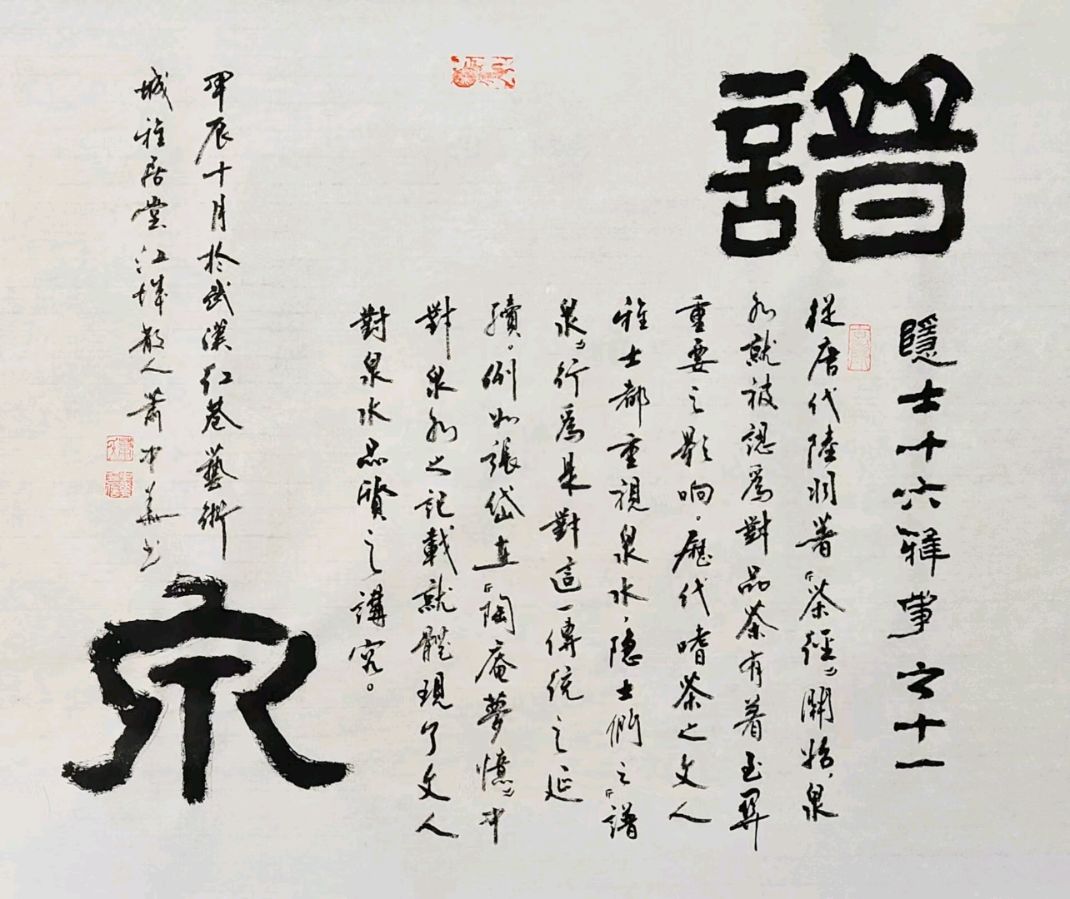 譜
隱士十六雅事之十一
從唐代陸羽著『茶經』開始，泉
水就被認爲對品茶有着至關
重要之影响。歷代嗜茶之文人
雅士都重視泉水，隱士們之『譜
泉』行爲是對這一傳統之延
續。例如張岱在『陶庵夢憶』中
對泉水之記載就體現了文人
對泉水品質之講究。
甲辰十月於武漢紅巷藝術
城雅居堂江城散人蕭中義书
泉